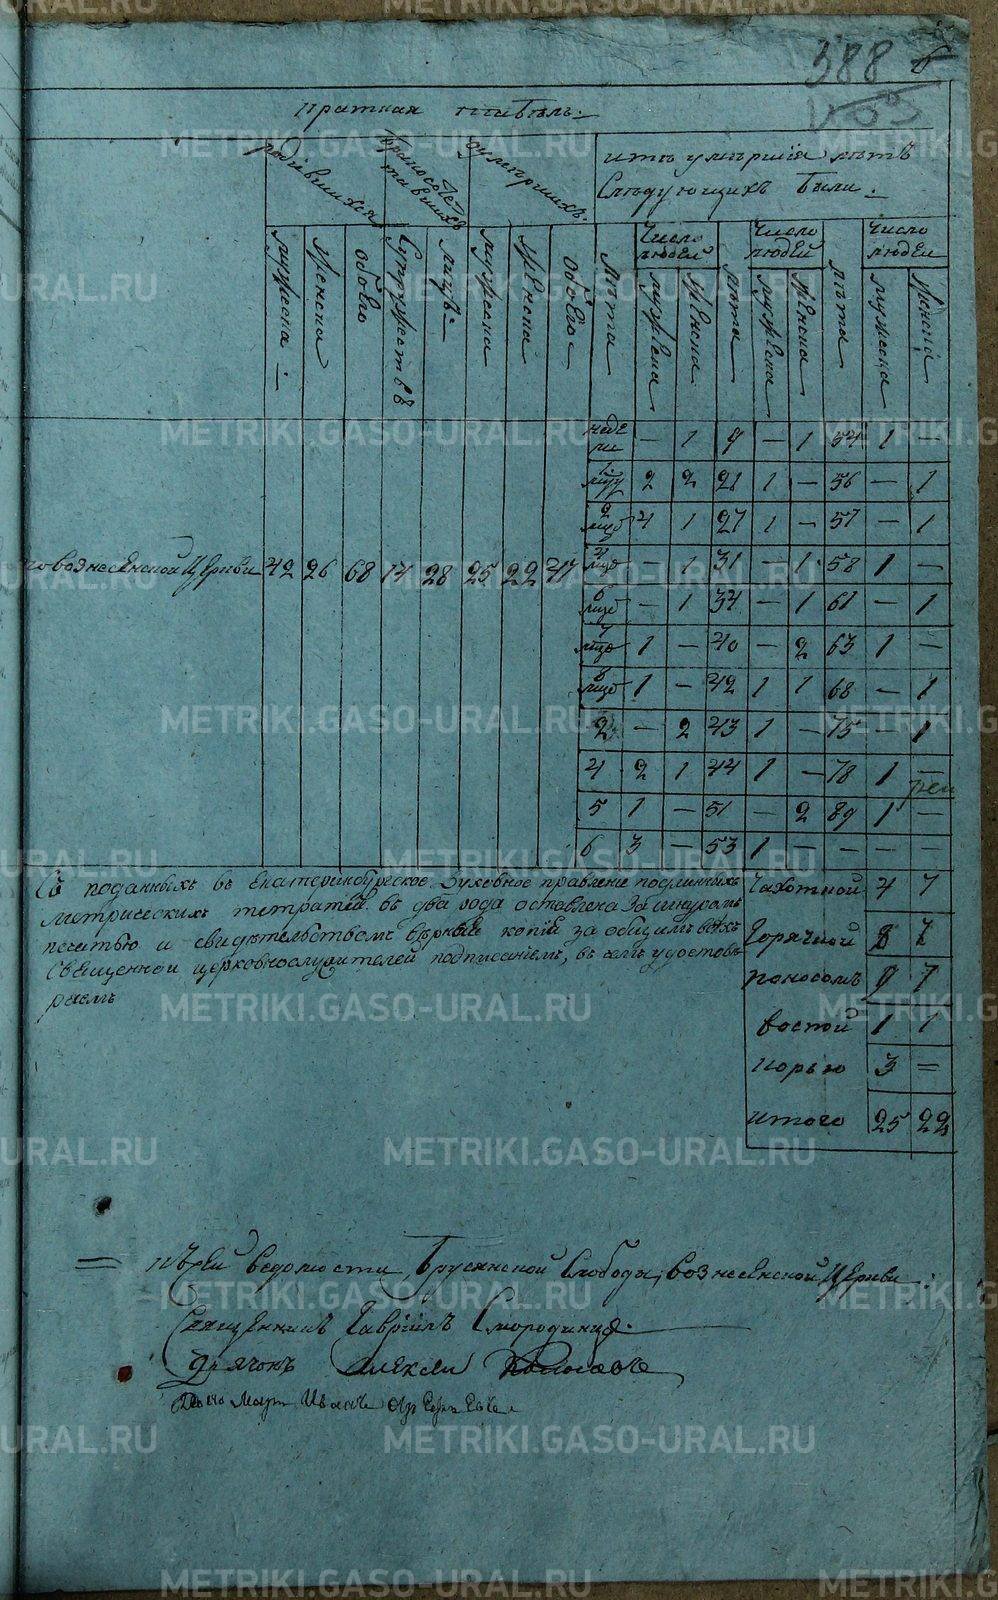 388
Краткая табель:
родившихся
бракосочетавшихся
умерших:
ить умершия летъ
Следующихъ были:
Число людей
Число людей
Число людей
мужеска
женска
обоего
Супружествъ
лицъ
мужеска
женска
обоего
Лета
мужеска
женска
лета
мужеска
женска
лета
мужеска
женска
неде ли — 1 9 — 1 54 1 —
1 2 2 21 1 — 56 — 1
2 4 1 27 1 — 57 — 1
4 — 1 31 — 1 58 1 —
вознесенской церкви 42 26 68 14 28 25 22 47
6 — 1 34 — 1 61 — 1
7 1 — 40 — 2 63 1 —
8 1 — 42 1 1 68 — 1
2 — 2 43 1 — 75 — 1
4 2 1 44 1 — 78 1 —
5 1 — 51 — 2 89 1 —
6 3 — 53 1 — — — —
Съ поданныхъ въ екатеринбургское Духовное правление подлинныхъ
метрическихъ тетратей въ два года оставлена за шнуромъ
печатью и свидетельствомъ верный копии за общимъ всехъ
Священно и церковнослужителей подписаниемъ, въ чемъ удостове
ряемъ
Чахоткой 4 7
Горячкой 8 7
поносомъ 9 7
воспой 1 1
корью 3 =
итого 25 22
= къ сей ведомости Брусянской Слободы, вознесенской церкви
Священникъ Гавриилъ Смородинцо.
Дьячокъ Алексеи
METRIKI.GASO-URAL.RU